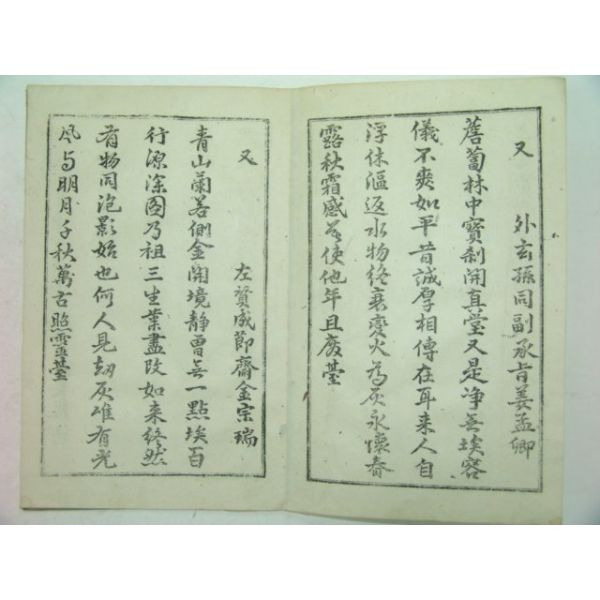 又
外玄孫同副承旨姜孟卿
薝蔔林中寶刹開真堂又是净無埃容
儀不爽如平昔誠厚相傳在耳來人自
浮休漚返水物終衰變火為灰永懷春
露秋霜感莫使他年且廢臺
又
左贊成節齋金宗瑞
青山蘭若側金開境静曾無一點埃百
行源深固乃祖三生業盡政如来終然
有物同泡影始也何人見劫灰雖有光
风与明月千秋萬古照靈臺